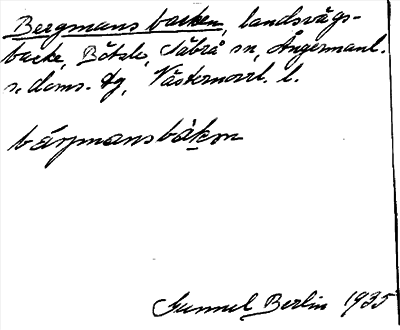 Bergmansbacken, landsvägs-
backe, Bölsle, Säbrå sn, Ångermanl.
s. doms. tg, Västernorrl. l.
bárjmansbàkən
Gunnel Berlin 1935